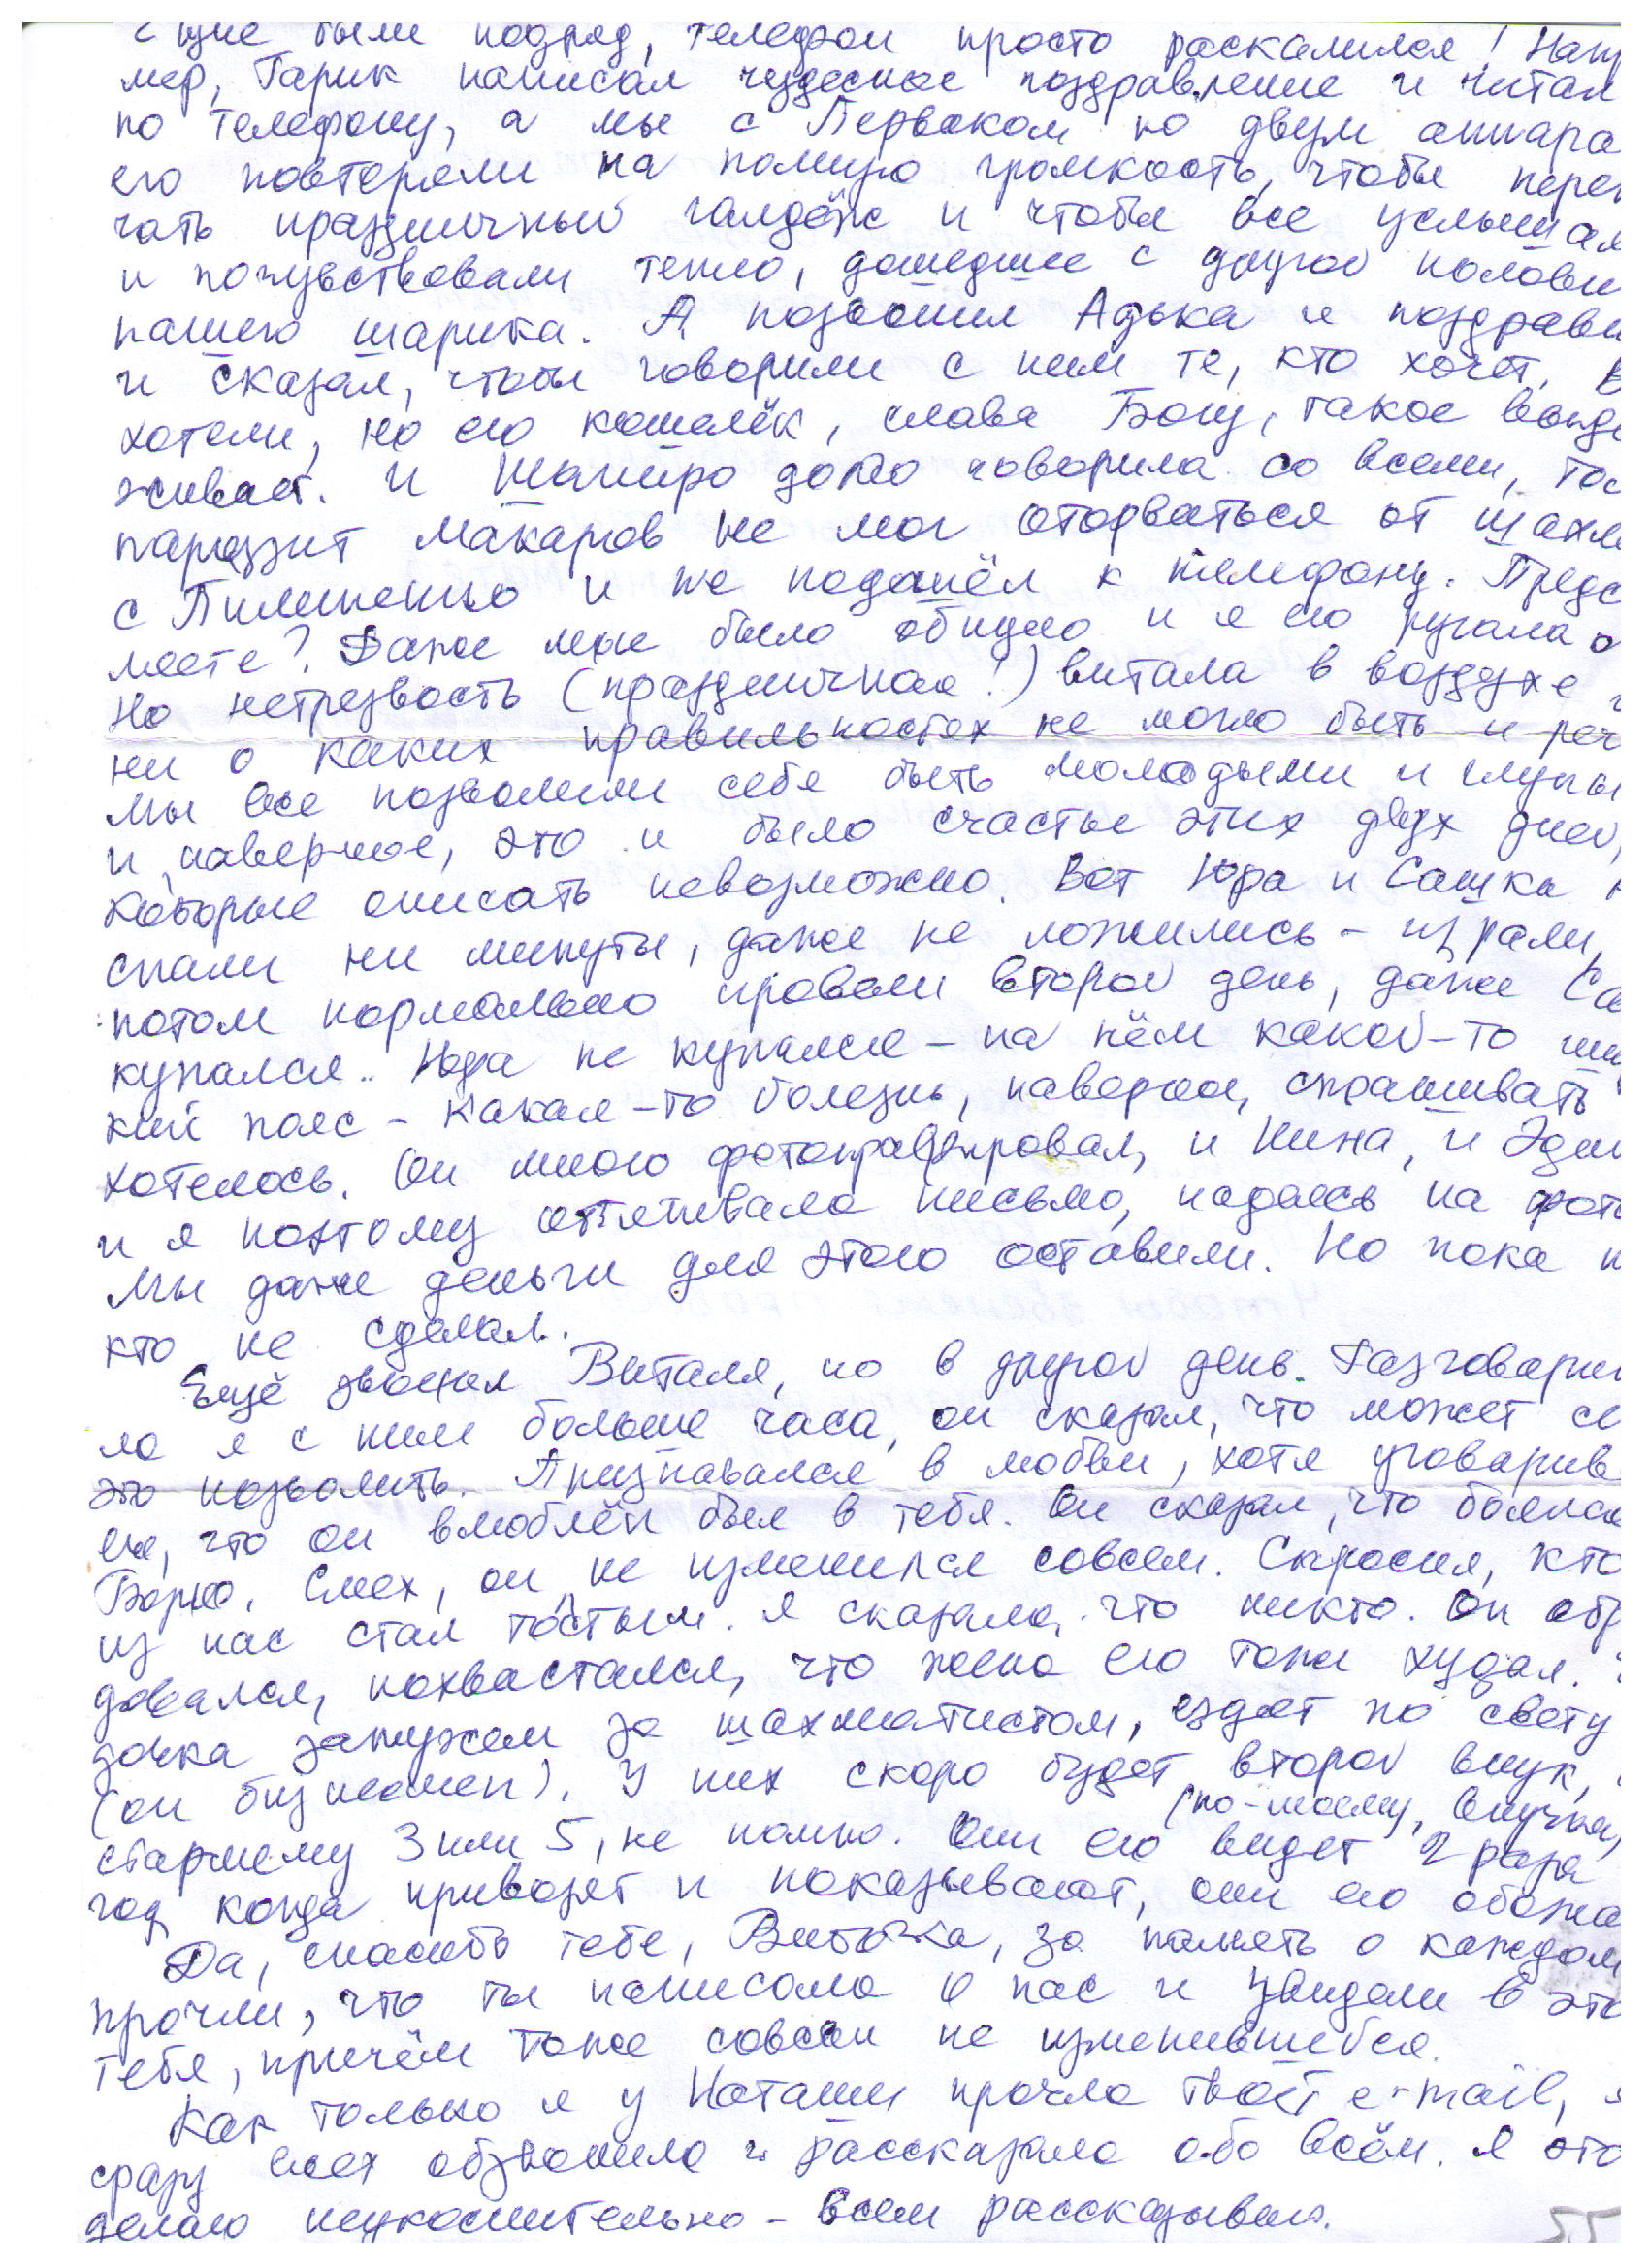 были подряд, телефон просто раскалился! Напр
мер, Гарик написал чудесное поздравление и читал
по телефону, а мы с Перваком по двум аппара
его повторяли на полную громкость, чтобы перек
чать праздничный галдёж и чтобы все услышал
и почувствовали тепло, дошедшее с другой половин
нашего шарика. А позвонил Адька и поздрави
и сказал, чтобы говорили с ним те, кто хочет. В
хотели, но его кошелёк, слава Богу, такое выде
живает. И Шапиро долго говорила со всеми, то
паразит Макаров не мог оторваться от шахм
с Пилипенко и не подошёл к телефону. Предс
ляете? Даже мне было обидно и я его ругала
Но нетрезвость (праздничная!) витала в воздухе
ни о каких правильностях не могло быть и реч
Мы все позволили себе быть молодыми и глупы
и, наверное, это и было счастье этих двух дней,
которые описать невозможно. Вот Юра и Сашка н
спали ни минуты, даже не ложились – играли,
потом нормально провели второй день, даже Са
купался. Юра не купался – на нём какой-то ши
кий пояс – какая-то болезнь, наверное, спрашивать
хотелось. Он много фотографировал, и Нина, и Эди
и я поэтому оттягивала письмо, надеясь на фото
Мы даже деньги для этого оставили. Но пока н
кто не сделал.
Ещё звонил Виталя, но в другой день. Разговарив
ла я с ним больше часа, он сказал, что может се
это позволить. Признавался в любви, хотя уговарив
ем, что он влюблён был в тебя. Он сказал, что боялся
Борю. Смех, он не изменился совсем. Спросил, кто
из нас стал толстым. Я сказала, что никто. Он обр
довался, похвастался, что жена его тоже худая.
дочка замужем за шахматистом, ездят по свету
(он бизнесмен). У них скоро будет второй внук,
(по-моему, внучка,
старшему 3 или 5, не помню. Они его видят 2 раза
год, когда привозят и показывают, они его обожа
Да, спасибо тебе, Виточка, за память о каждом
прочли, что ты написала о нас и увидели в это
тебя, причём тоже совсем не изменившейся.
Как только я у Наташи прочла твой e-mail, я
сразу всех обзвонила и рассказала обо всём. Я это
делаю неукоснительно – всем рассказываю.
55